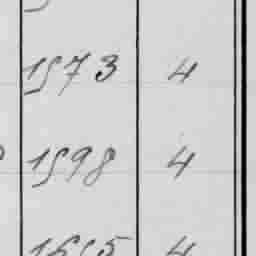 1573 4
1598 4